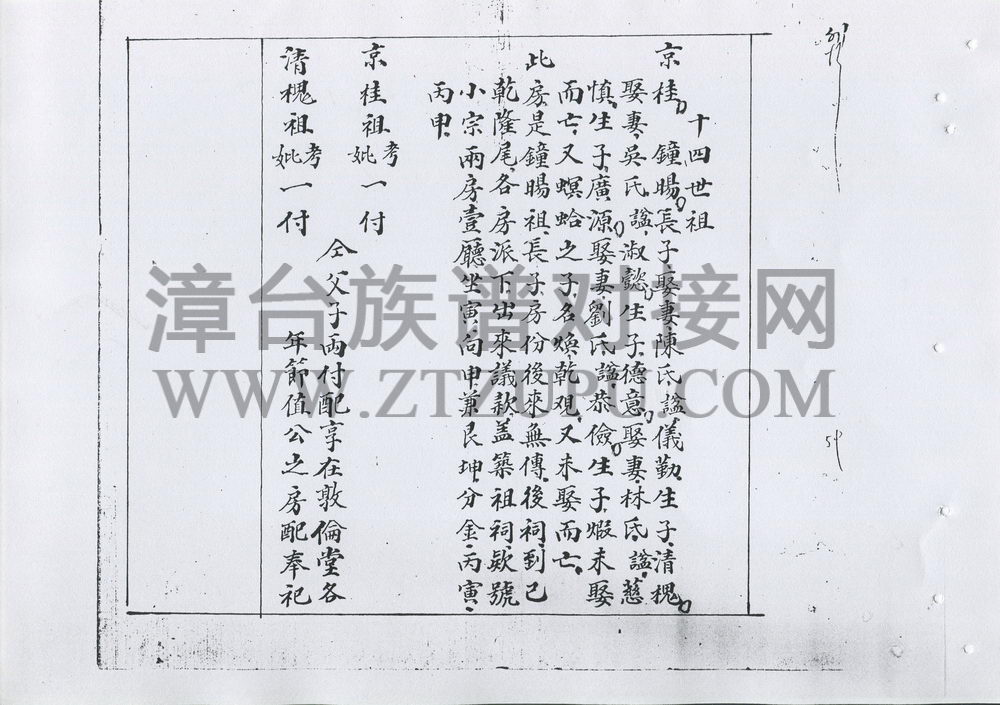 十四世祖
京桂 鐘暘長子娶妻陳氏謚儀勤生子清槐
娶妻吳氏謚淑懿生子德意娶妻林氏謚慈
慎生子廣源娶妻劉氏謚恭儉生子煆未娶
而亡又螟蛤之子名煥乾观又未娶而亡
此房是鐘暘祖長子房份後來無傳後祠到己
乾隆尾各房派下出來議欵蓋築祖祠欵號
小宗兩房壹廳坐寅向申兼艮坤分金丙寅
丙申
京桂祖考妣一付
仝父子兩付配享在敦倫堂各
清槐祖考妣一付
年節值公之房配奉祀
漳台族谱对接网
WWW.ZTZUPU.COM